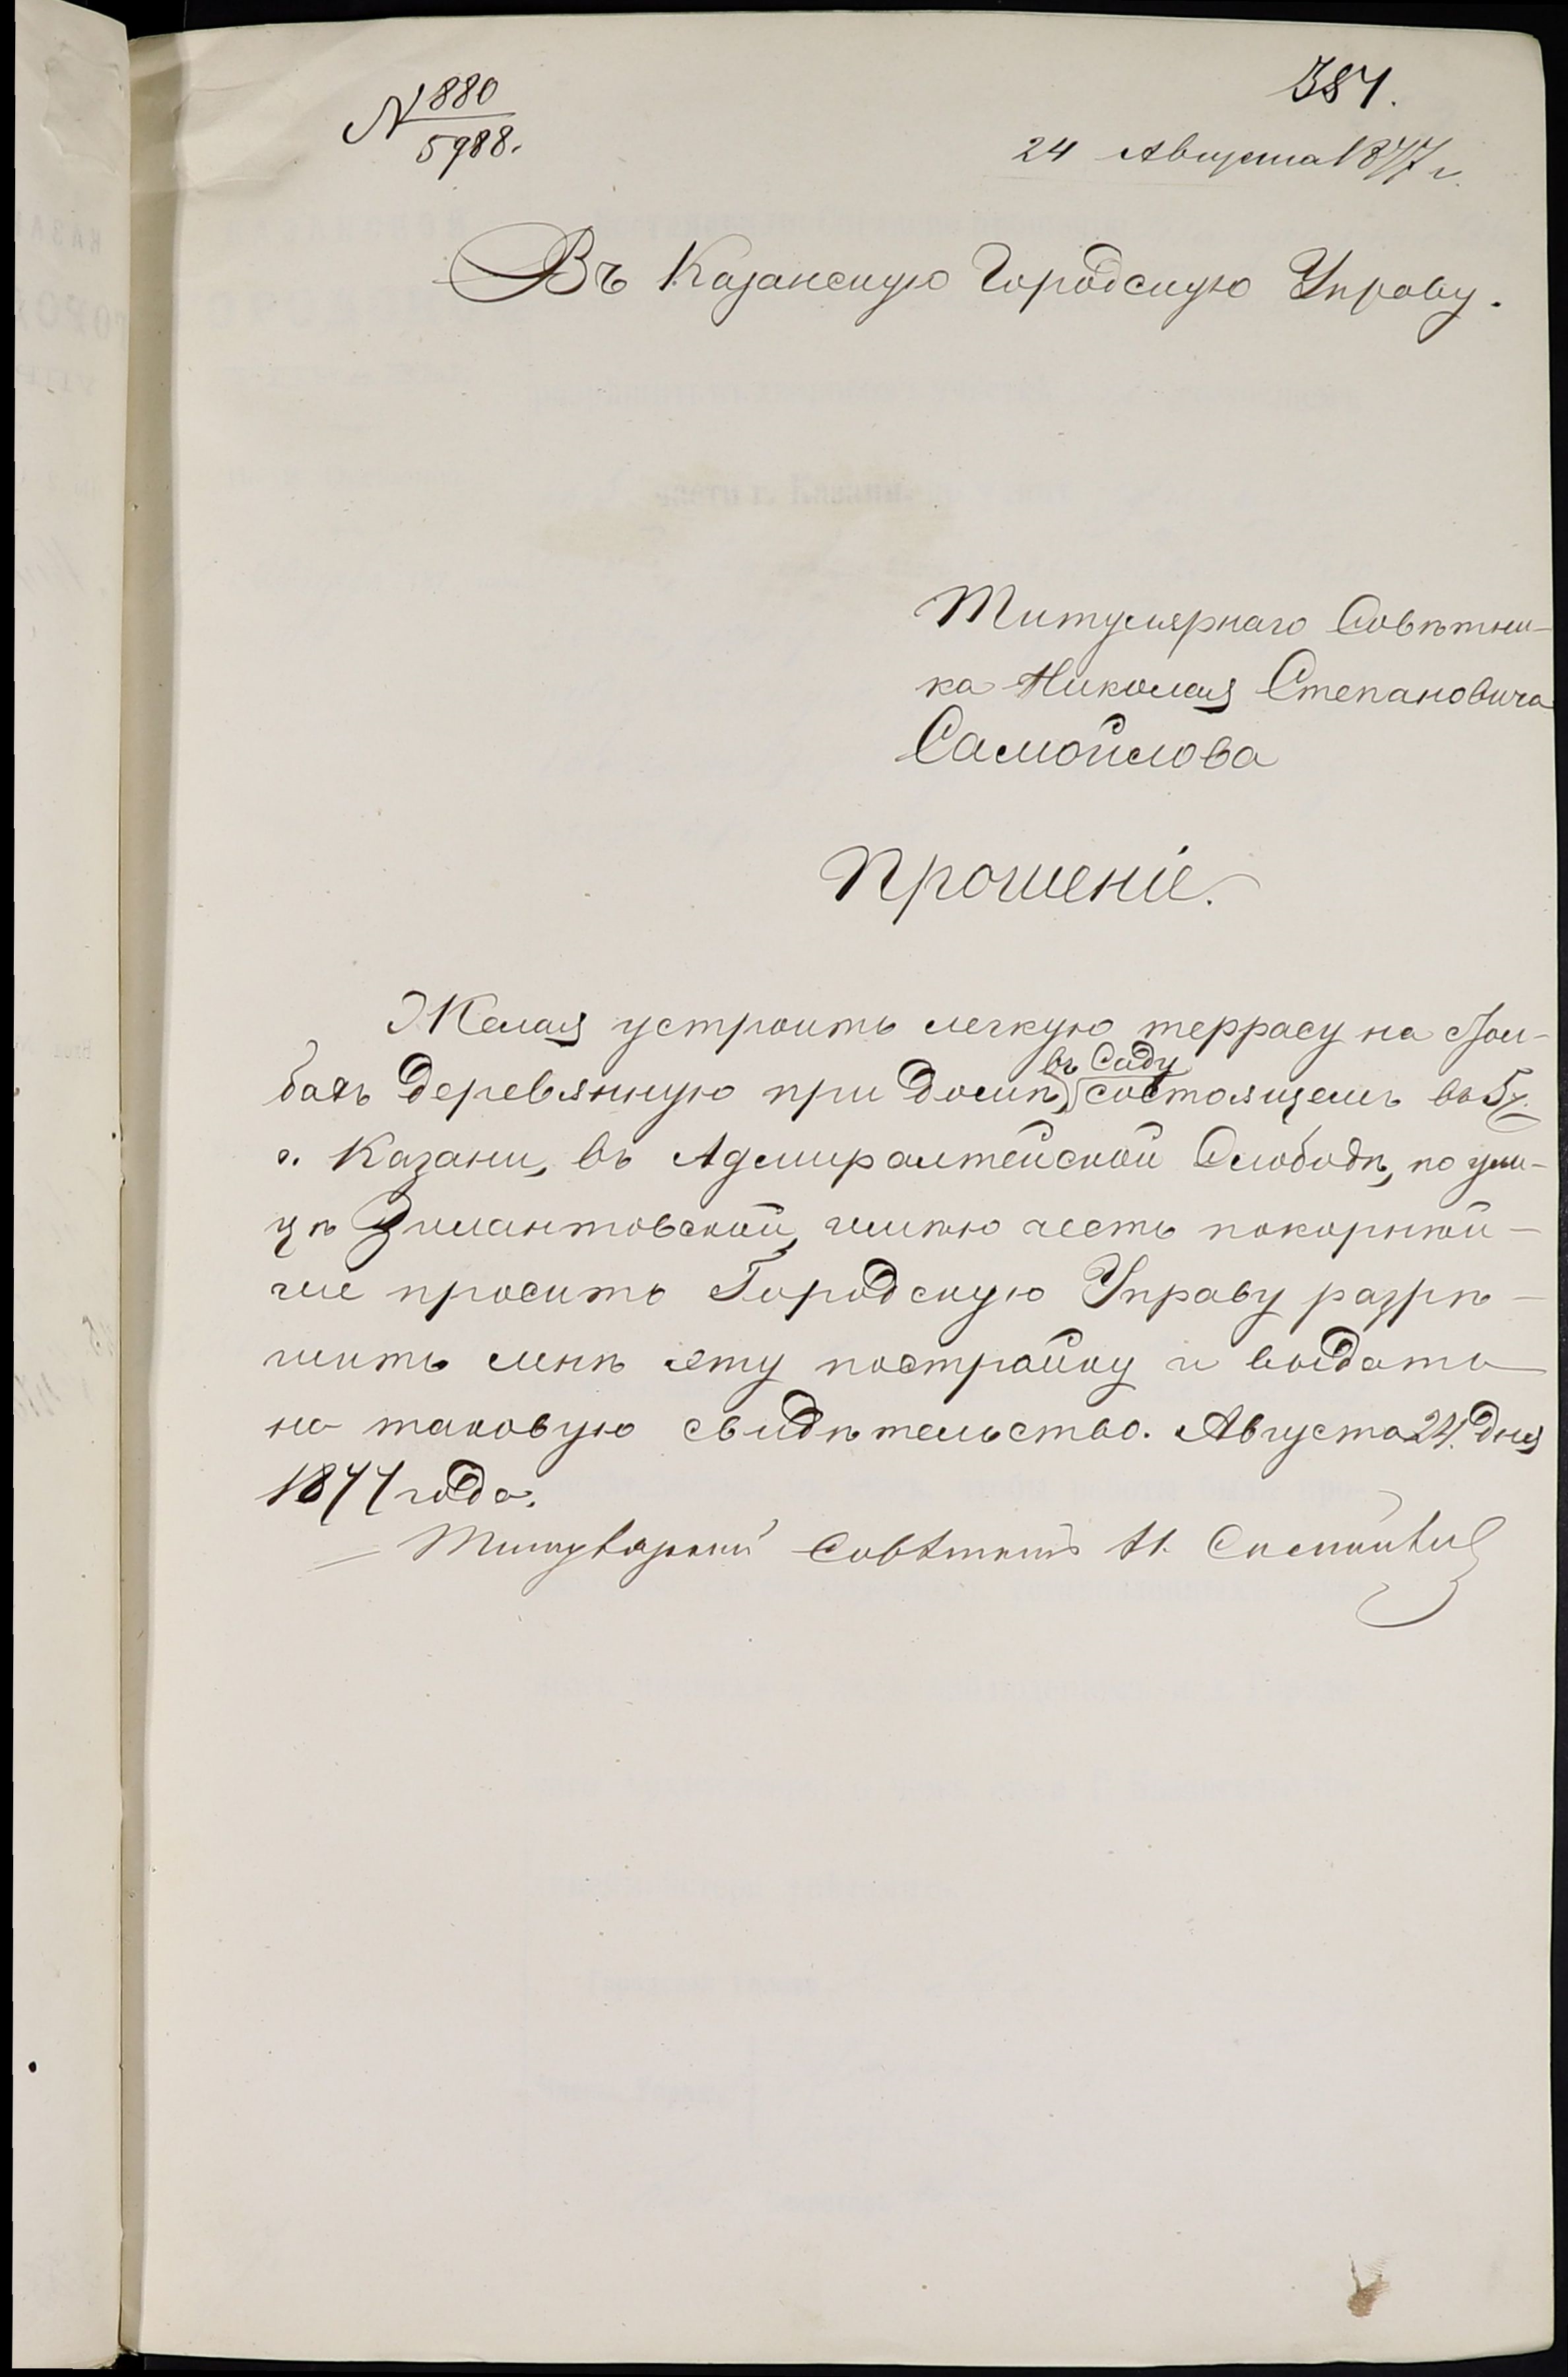 № 880
5988.
387.
24 Августа 1877 г.
Въ Казанскую Городскую Управу.
Титулярнаго Совѣтни-
ка Николая Степановича
Самойлова
Прошеніе.
Желая устроить легкую террасу на стол-
бахъ деревянную при домѣ, въ саду состоящемъ въ 5 ч.
г. Казани, въ Адмиралтейской Слободѣ, по ули-
цѣ Зилантовской, имѣю честь покорнѣй-
ше просить Городскую Управу разрѣ-
шить мнѣ эту постройку и выдать
на таковую свидѣтельство. Августа 24 дня
1877 года.
Титулярный Совѣтникъ Н. Самойлов